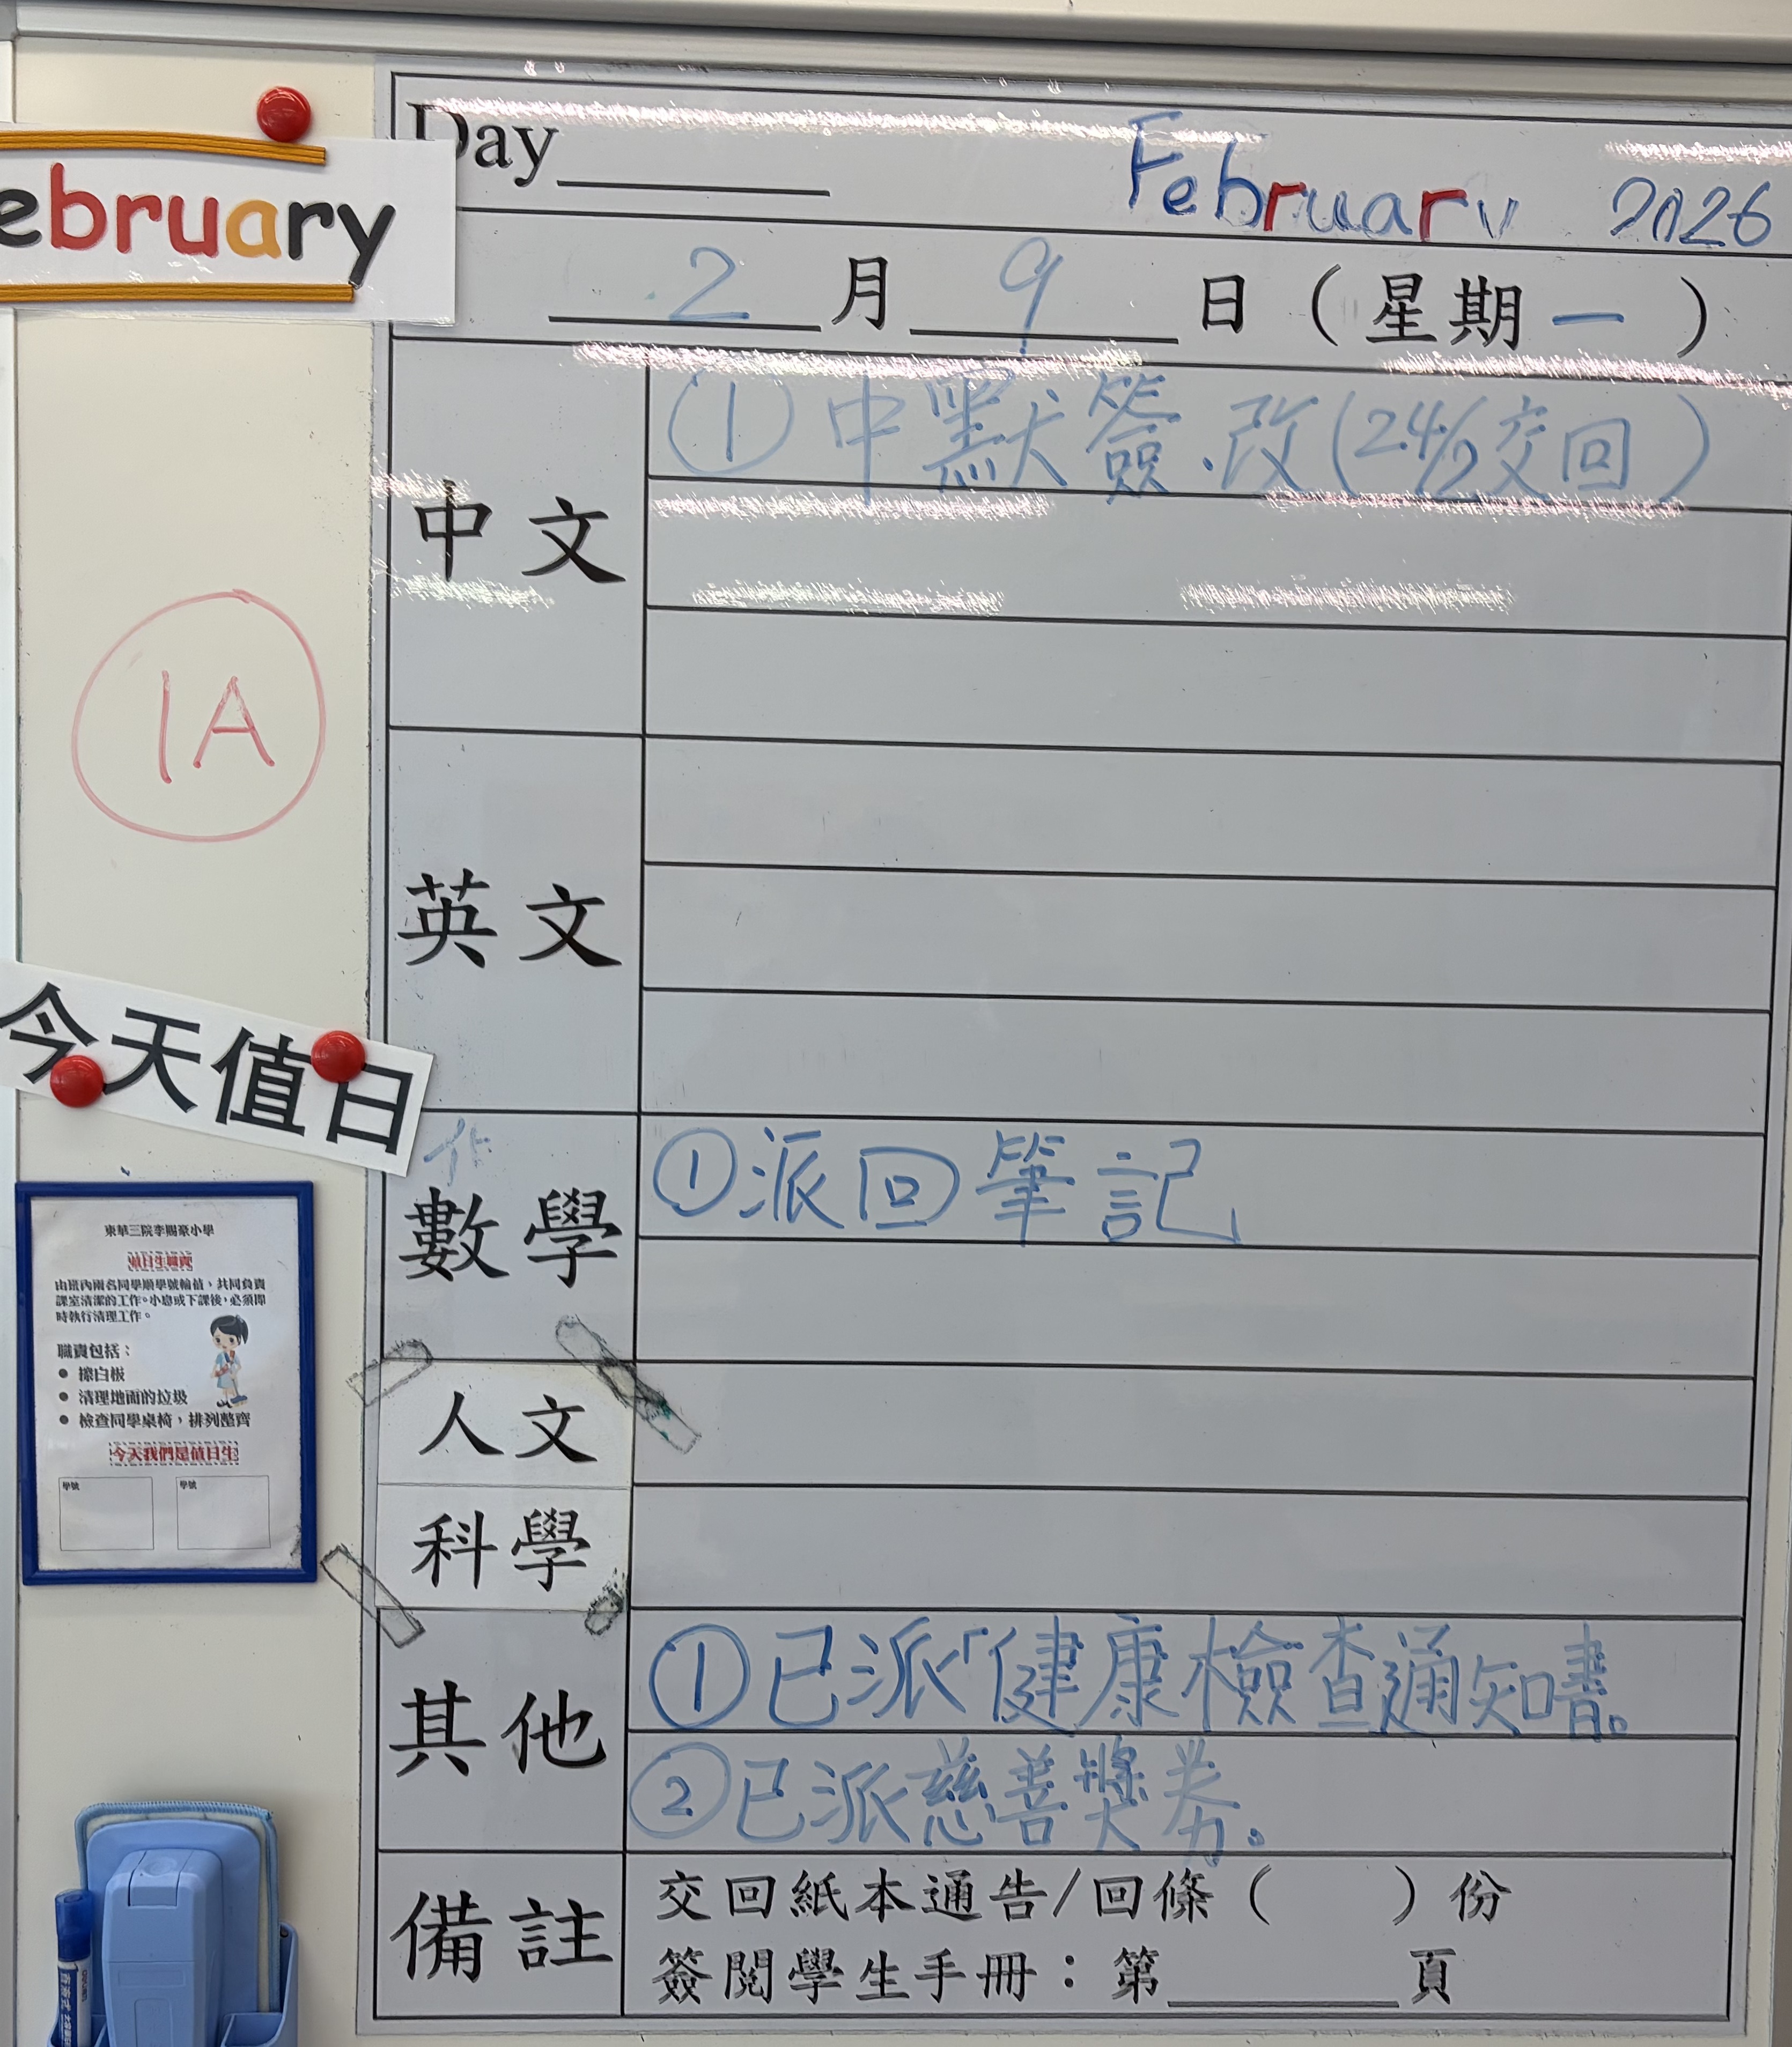 Day
February 2026
ebruary
2月9日（星期一）
中文
①中默簽.改(24/2交回)
1A
英文
今天值日
作
數學
①派回筆記
人文
科學
其他
①已派「健康檢查通知書。
②已派慈善獎券。
備註
交回紙本通告/回條（　　）份
簽閱學生手冊：第　　頁
東華三院李賜豪小學
值日生職責
由班內兩名同學順學號輪值，共同負責
課室清潔的工作。小息或下課後，必須即
時執行清理工作。
職責包括：
● 擦白板
● 清理地面的垃圾
● 檢查同學桌椅，排列整齊
今天我們是值日生
學號
學號